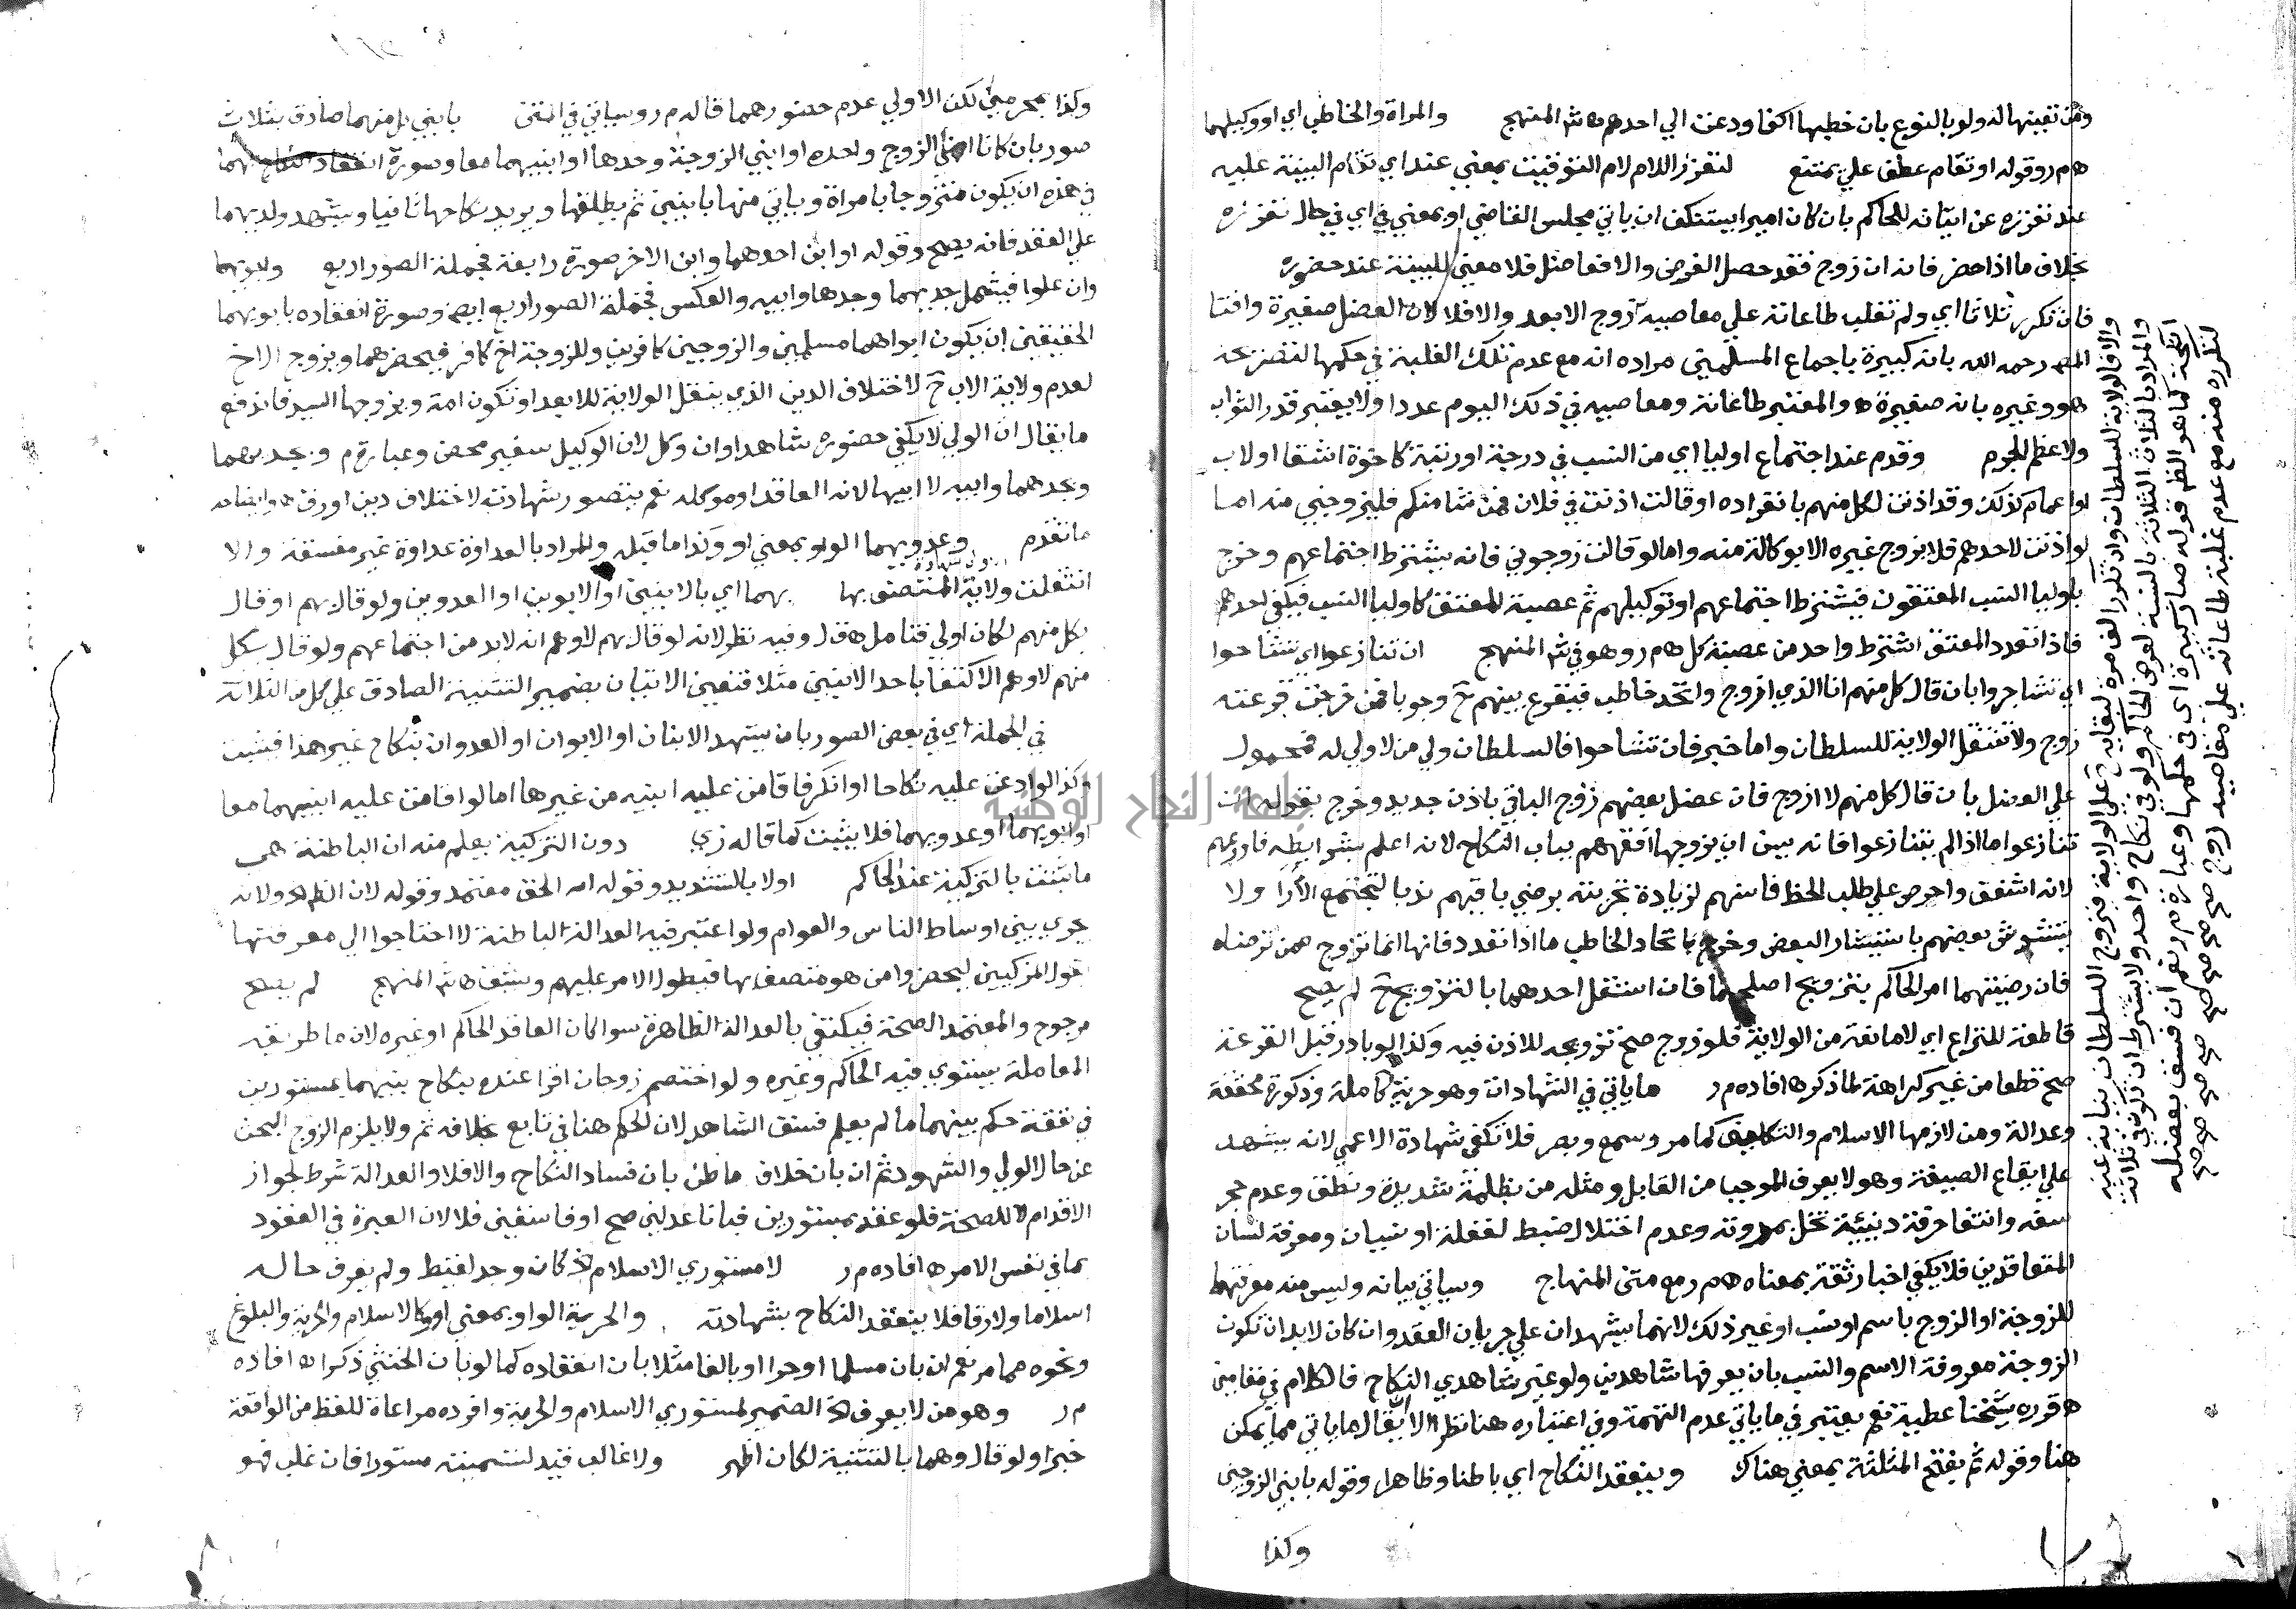 ومن تعيينها له ولو بالنوع بان خطبها اكفا ودعت الي احدهم ه ش المنهج والمراة والخاطب اي او وكيلهما
ه م ر وقوله او تقام عطف علي يمتنع لتعزز اللام لام التوقيت بمعني عند اي تقام البينة عليه
عند تعززه عن اتيانه للحاكم بان كان اميرا يستنكف ان ياتي مجلس القاضي او بمعني في اي في حال تعززه
بخلاف ما اذا حضر فانه ان زوج فقد حصل الغرض والا فعاضل فلا معني للبينة عند حضوره
فان تكرر ثلاثا اي ولم تغلب طاعاته علي معاصيه زوج الابعد والا فلا لان العضل صغيرة وافتا
المص رحمه الله بانه كبيرة باجماع المسلمين مراده انه مع عدم تلك الغلبة في حكمها لتصريحه
هو وغيره بانه صغيرة ه والمعتبر طاعاته ومعاصيه في ذلك اليوم عددا ولا يعتبر قدر الثواب
ولا عظم الجرم وقدم عند اجتماع اوليا اي من النسب في درجة او رتبة كاخوة اشقا او لاب
او اعمام كذلك وقد اذنت لكل منهم بانفراده او قالت اذنت في فلان فمن شا منكم فليزوجني منه اما
لو اذنت لاحدهم فلا يزوج غيره الا بوكالة منه واما لو قالت زوجوني فانه يشترط اجتماعهم وخرج
باوليا النسب المعتقون فيشترط اجتماعهم او توكيلهم ثم عصبة المعتق كاوليا النسب فيكفي احدهم
فاذا تعدد المعتق اشترط واحد من عصبة كل ه م ر وهو في ش المنهج ان تنازعوا اي تشاحوا
اي تشاجروا بان قال كل منهم انا الذي ازوج واتحد خاطب فيقرع بينهم ح وجوبا فمن خرجت قرعته
زوج ولا تنتقل الولاية للسلطان واما خبر فان تشاحوا فالسلطان ولي من لا ولي له فمحمول
علي العضل بان قال كل منهم لا ازوج فان عضل بعضهم زوج الباقي باذن جديد وخرج بقوله ان
تنازعوا ما اذا لم يتنازعوا فانه يسن ان يزوجها افقههم بباب النكاح لانه اعلم بشرايطه فاورعهم
لانه اشفق واحرص علي طلب الحظ فاسنهم لزيادة تجربته برضي باقيهم ندبا لتجتمع الارا ولا
يتشوش بعضهم باستيثار البعض وخرج باتحاد الخاطب ما اذا تعدد فانها انما تزوج ممن ترضاه
فان رضيتهما امر الحاكم بتزويج اصلحهما فان استقل احدهما بالتزويج ح لم يصح
قاطعة للنزاع اي لا مانعة من الولاية فلو زوج صح تزويجه للاذن فيه وكذا لو بادر قبل القرعة
صح قطعا من غير كراهة لما ذكر ه افاده م ر ما ياتي في الشهادات وهو حرية كاملة وذكورة محققة
وعدالة ومن لازمها الاسلام والتكليف كما مر وسمع وبصر فلا تكفي شهادة الاعمي لانه يشهد
علي ايقاع الصيغة وهو لا يعرف الموجب من القابل ومثله من بظلمة شديدة ونطق وعدم حجر
سفه وانتفا حرفة دنيئة تخل بمروته وعدم اختلال ضبط لغفلة او نسيان ومعرفة لسان
المتعاقدين فلا يكفي اخبار ثقة بمعناه ه م ر مع متن المنهاج وسياتي بيانه وليس منه معرفتهما
للزوجة او الزوج باسم او نسب او غير ذلك لانهما يشهدان علي جريان العقد وان كان لا بد ان تكون
الزوجة معروفة الاسم والنسب بان يعرفها شاهدين ولو غير شاهدي النكاح فالكلام في مقامين
ه قرره شيخنا عطية نعم يعتبر في ما ياتي عدم التهمة وفي اعتباره هنا نظر الا ان يقال ما ياتي مما يمكن
هنا وقوله ثم بفتح المثلثة بمعني هناك وينعقد النكاح اي باطنا وظاهرا وقوله بابني الزوجين
وكذا
والا فالولاية للسلطان واذا تكرر الي مرة لبقائه علي الولاية فيزوج السلطان بنيابة عنه
والمراد بالثلاث الثلاثة بالنسبة لعرض الحاكم ولو في نكاح واحد ولا يشترط ان تكون في ثلاثة
انكحة كما هو الظ قوله صار كبيرة اي في حكمها وعبارة م ر نعم ان فسق بعضله
لتكرره منه مع عدم غلبة طاعاته علي معاصيه زوج صح صح صح صح صح صح صح صح
وكذا بمحرمين لكن الاولي عدم حضورهما قاله م ر وسياتي في المتن بابني كل منهما صادق بثلاث
صور بان كانا ابني الزوج وحده او ابني الزوجة وحدها او ابنيهما معا وصورة انعقاد النكاح بهما
في هذه ان يكون متزوجا بامراة وياتي منها بابنين ثم يطلقها ويريد نكاحها ثانيا ويشهد ولديهما
علي العقد فانه يصح وقوله او ابن احدهما وابن الاخر صورة رابعة فجملة الصور اربع وابويهما
وان علوا فيشمل جديهما وجدها وابيه والعكس فجملة الصور اربع ايض وصورة انعقاده بابويهما
الحقيقين ان يكون ابواهما مسلمين والزوجين كافرين وللزوجة اخ كافر فيحضرهما ويزوج الاخ
لعدم ولاية الاب ح لاختلاف الدين الذي ينقل الولاية للابعد او تكون امة ويزوجها السيد فاندفع
ما يقال ان الولي لا يكفي حضوره شاهدا وان وكل لان الوكيل سفير محض وعبارة م ر وبجديهما
وبجدهما وابيه لا ابيها لانه العاقد او موكله نعم يتصور شهادته لاختلاف دين او رق ه وايضاحه
ما تقدم وعدويهما الواو بمعني او وكذا ما قبله والمراد بالعداوة عداوة غير مفسقة والا
انتقلت ولاية المتصف بها بهما اي بالابنين او الابوين او العدوين ولو قال بهم او قال
بكل منهم لكان اولي فتامل ه ق ل وفيه نظر لانه لو قال بهم لاوهم انه لا بد من اجتماعهم ولو قال بكل
منهم لاوهم الاكتفا باحد الابنين مثلا فتعين الاتيان بضمير التثنية الصادق علي كل من الثلاثة
في الجملة اي في بعض الصور بان يشهد الابنان او الابوان او العدوان بنكاح غير هذا فيثبت
وكذا لو ادعت عليه نكاحا او انكر فاقامت عليه ابنيه من غيرها اما لو اقامت عليه ابنيهما معا
او ابويهما او عدويهما فلا يثبت كما قاله زي دون التزكية يعلم منه ان الباطنة هي
ما تثبت بالتزكية عند الحاكم اولا بالتشديد وقوله امه الحق معتمد وقوله لان الظ الخ ولانه
يجري بين اوساط الناس والعوام ولو اعتبر فيه العدالة الباطنة لا احتاجوا الي معرفتها
قول المزكيين ليحضروا من هو متصف بها فيطول الامر عليهم ويشق ه ش المنهج لم يصح
مرجوح والمعتمد الصحة فيكتفي بالعدالة الظاهرة سوا كان العاقد الحاكم او غيره لان ما طريقه
المعاملة يستوي فيه الحاكم وغيره ولو اختصم زوجان اقرا عنده بنكاح بينهما بمستورين
في نفقة حكم بينهما ما لم يعلم فسق الشاهد لان الحكم هنا في تابع بخلافه ثم ولا يلزم الزوج البحث
عن حال الولي والشهود ثم ان بان خلاف ما ظن بان فساد النكاح والا فلا والعدالة شرط لجواز
الاقدام لا للصحة فلو عقد بمستورين فبانا عدلين صح او فاسقين فلا لان العبرة في العقود
بما في نفس الامر ه افاده م ر لا مستوري الاسلام كان وجد لقيط ولم يعرف حاله
اسلاما ولا رقا فلا ينعقد النكاح بشهادته والحرية الواو بمعني او وكالاسلام والحرية والبلوغ
ونحوه مما مر نعم ان بان مسلما او حرا او بالغا مثلا بان انعقاده كما لو بان الخنثي ذكرا ه افاده
م ر وهو من لا يعرف الضمير لمستوري الاسلام والحرية وافرده مراعاة للفظ من الواقعة
خبرا ولو قال وهما بالتثنية لكان اظهر ولا غالب قيد لتسميته مستورا فان غلب فهو
جامعة النجاح الوطنية